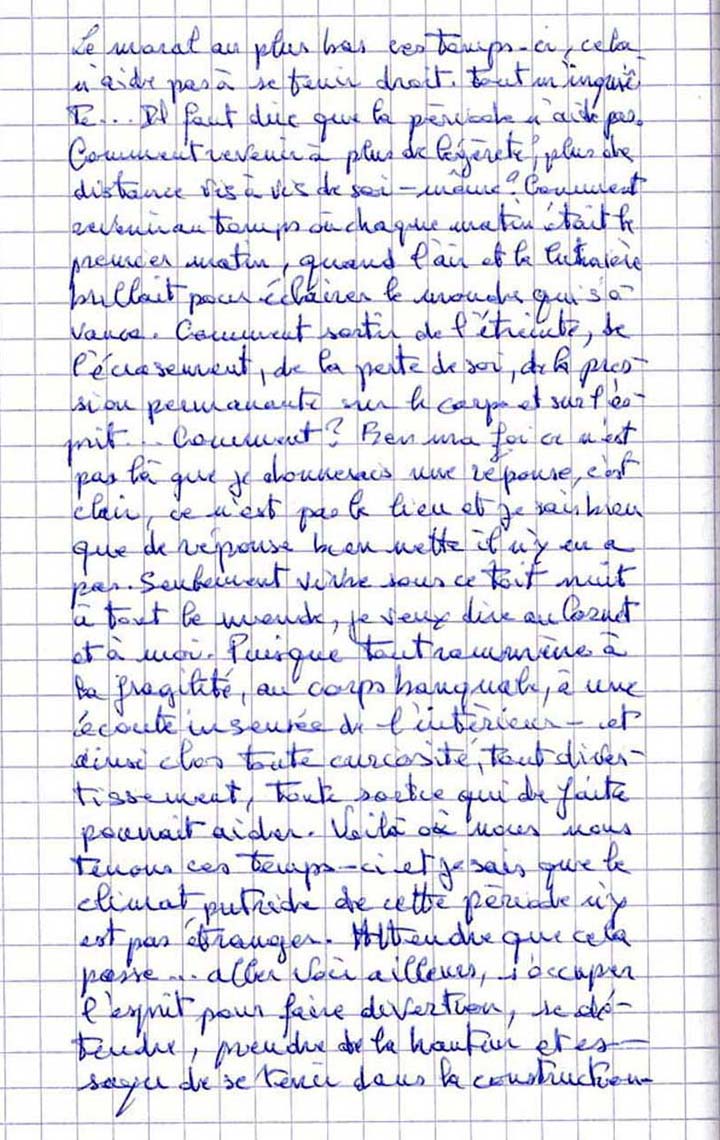 Le moral au plus bas ces temps-ci, cela
n'aide pas à se tenir droit. tout m'inquiè
te... Il faut dire que la période n'aide pas.
Comment revenir à plus de légèreté, plus de
distance vis à vis de soi-même? Comment
revenir au temps où chaque matin était le
premier matin, quand l'air et la lumière
brillait pour éclairer le monde qui s'a-
vance. Comment sortir de l'étreinte, de
l'écrasement, de la perte de soi, de la pres-
sion permanante sur le corps et sur l'es-
prit... Comment? Ben ma foi ce n'est
pas là que je donnerais une réponse, c'est
clair, ce n'est pas le lieu et je sais bien
que de réponse bien nette il n'y en a
pas. Seulement vivre sous ce toit nuit
à tout le monde, je veux dire au Carnet
et à moi. Puisque tout rammène à
la fragilité, au corps banquale, à une
écoute insensée de l'intérieur - et
ainsi clos toute curiosité, tout diver-
tissement, toute sortie qui de faite
pourrait aider. Voilà où nous nous
tenons ces temps-ci et je sais que le
climat putride de cette période n'y
est pas étranger. Attendre que cela
passe... aller voir ailleurs, s'occuper
l'esprit pour faire divertion, se dé-
tendre, prendre de la hauteur et es-
sayer de se tenir dans la construction